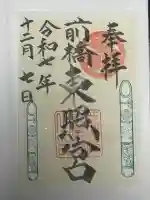 奉拝
前橋東照宮
令和七年
十二月七日